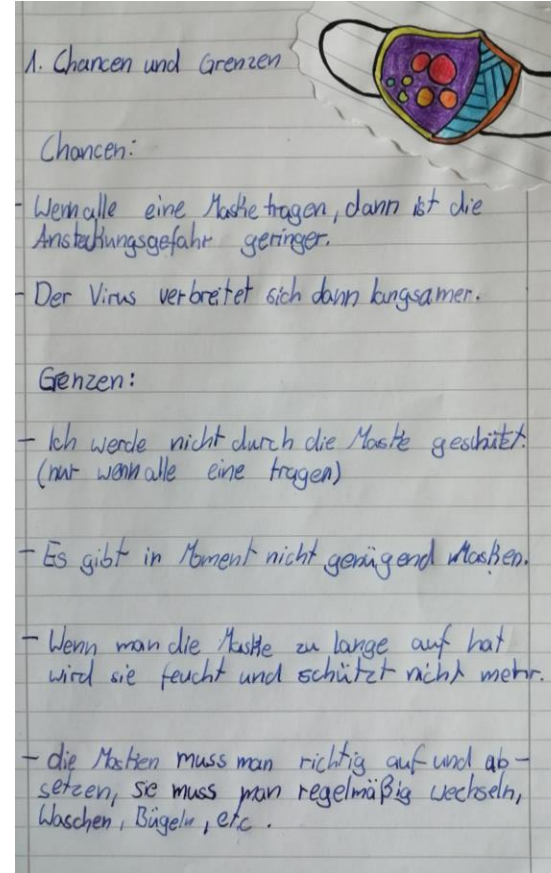 1. Chancen und Grenzen
Chancen:
- Wenn alle eine Maske tragen, dann ist die
Ansteckungsgefahr geringer.
- Der Virus verbreitet sich dann langsamer.
Grenzen:
- Ich werde nicht durch die Maske geschützt.
(nur wenn alle eine tragen)
- Es gibt in Moment nicht genügend Masken.
- Wenn man die Maske zu lange auf hat
wird sie feucht und schützt nicht mehr.
- die Masken muss man richtig auf und ab-
setzen, sie muss man regelmäßig wechseln,
Waschen, Bügeln, etc.